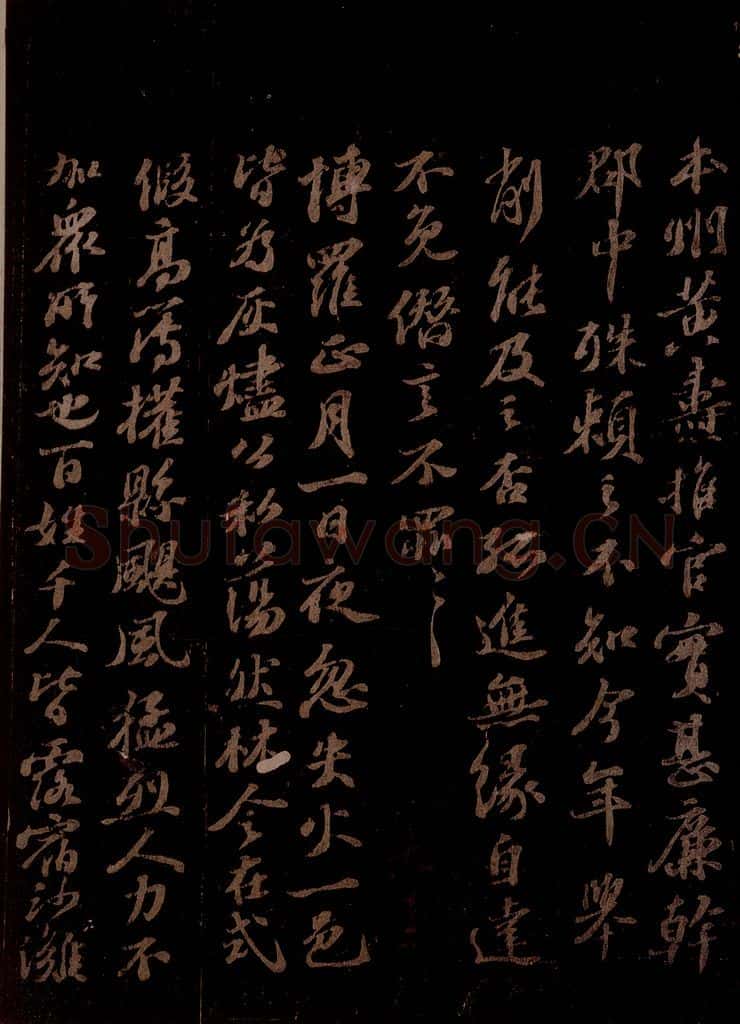 本州黄燾推官實甚廉幹
郡中殊賴之不知今年舉
削能及之否孤進無緣自達
不免僭言不罪〻
博羅正月一日夜忽失火一邑
皆為灰燼公私蕩然林令在式
假高簿權縣颶風猛烈人力不
加衆所知也百姓千人皆露宿沙灘
Shufawang.CN